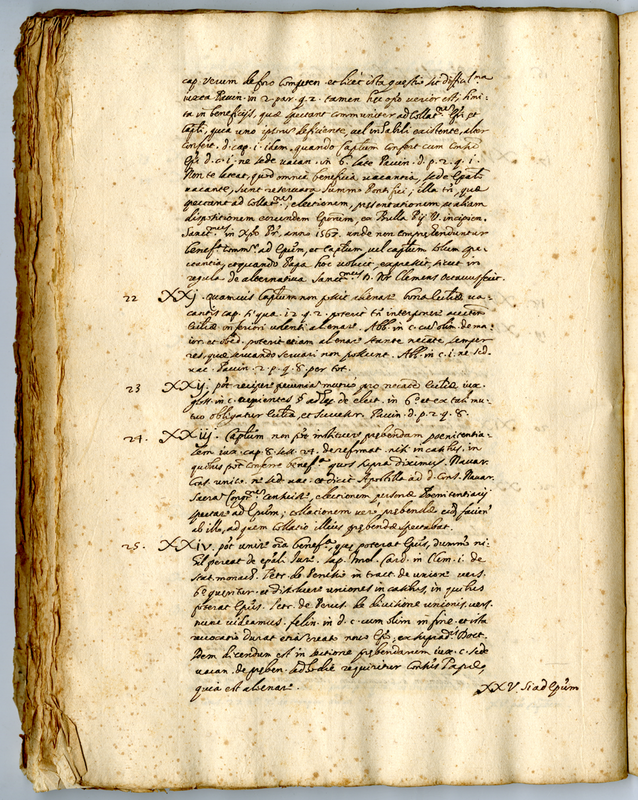 cap. verum de foro Competen. et licet ista questio sit difficil.ma
iuxta Pavin. in 2. par. q. 2. tamen hec op.o verior est; limi-
ta in beneficijs, quæ spectant communiter ad Collat.nem Epi et
Capti, quia uno ipsorum deficiente, vel inhabili existente, alter
Confert. d. cap. i. idem quando Captum confert cum Consilio
Epi d. c. i. ne sede vacan. in 6. late Pavin. d. p. 2. q. i.
Non te lateat, quod omnia beneficia vacantia, sede Epali
vacante, sunt reservata Summo Pontifici; illa tn, quæ
spectant ad Collat.nem, electionem, presentationem, seu aliam
dispositionem eorundem Eporum, ex Bulla Pij V. incipien.
Sanct.us in Xpo Pr, anno 1567. unde non comprehenduntur
benef.a comm.a ad Epum, et Captum vel Captum solum spe-
ctantia, et quando Papa hoc voluit, expressit, sicut in
regula de alternativa Sanct.mus D. Nr Clemens Octavus fecit.
22 XXj. Quamvis Captum non possit alienare bona Eccliæ va-
cantis cap. si qua. 12. q. 2. poterit tn interponere auctem
Eccliæ inferiori volenti alienare. Abb. in c. cum olim de ma-
ior. et obed. poterit etiam alienare stante necate semper
res, quæ servando servari non possunt. Abb. in c. i. ne sed.
vac. Pavin. 2. p. q. 8. per tot.
23 XXij. pot recipere pecunias mutuo pro necate Eccliæ iux.
gloss. in c. cupientes § de elect. in 6. et ex tali mu-
tuo obligatur Ecclia, et Successor. Pavin. d. p. 2. q. 8.
24. XXiij. Captum non pot instituere prebendam poenitentia-
lem iux. cap. 8. sess. 24. de reformat. nisi in casibus, in
quibus pot conferre benef.a quos supra diximus. Navar.
Cons. unico ne sed. vac. et dicit Apostilla ad d. Cons. Navar.
Sacra Congr.nem censuisse, electionem personæ Poenitentiarij
spectare ad Epum; collationem vero prebendæ esse facien
ab illo, ad quem Collatio illius prebendæ spectabat.
25. XXiv. pot unire oia benef.a, quæ poterat Epus, dummo ni-
hil pereat de epali Jure. Zap. Imol. Card. in Clem. i. de
stat. monach. Petr. de Perusio in tract. de unione vers.
6.o queritur. et dissolvere uniones in casibus, in quibus
poterat Epus. Petr. de Perus. de divisione unionis, vers.
nunc videamus. felin. in d. c. cum olim in fine. et ista
revocatio durat etia creato novo Epo, ex supradd. Doct.
Idem dicendum est in sectione prebendarum iux. c. sede
vacan. de preben. ad hodie requiritur Consensus Papæ,
quia est alienare.
XXV. Si ad Epum